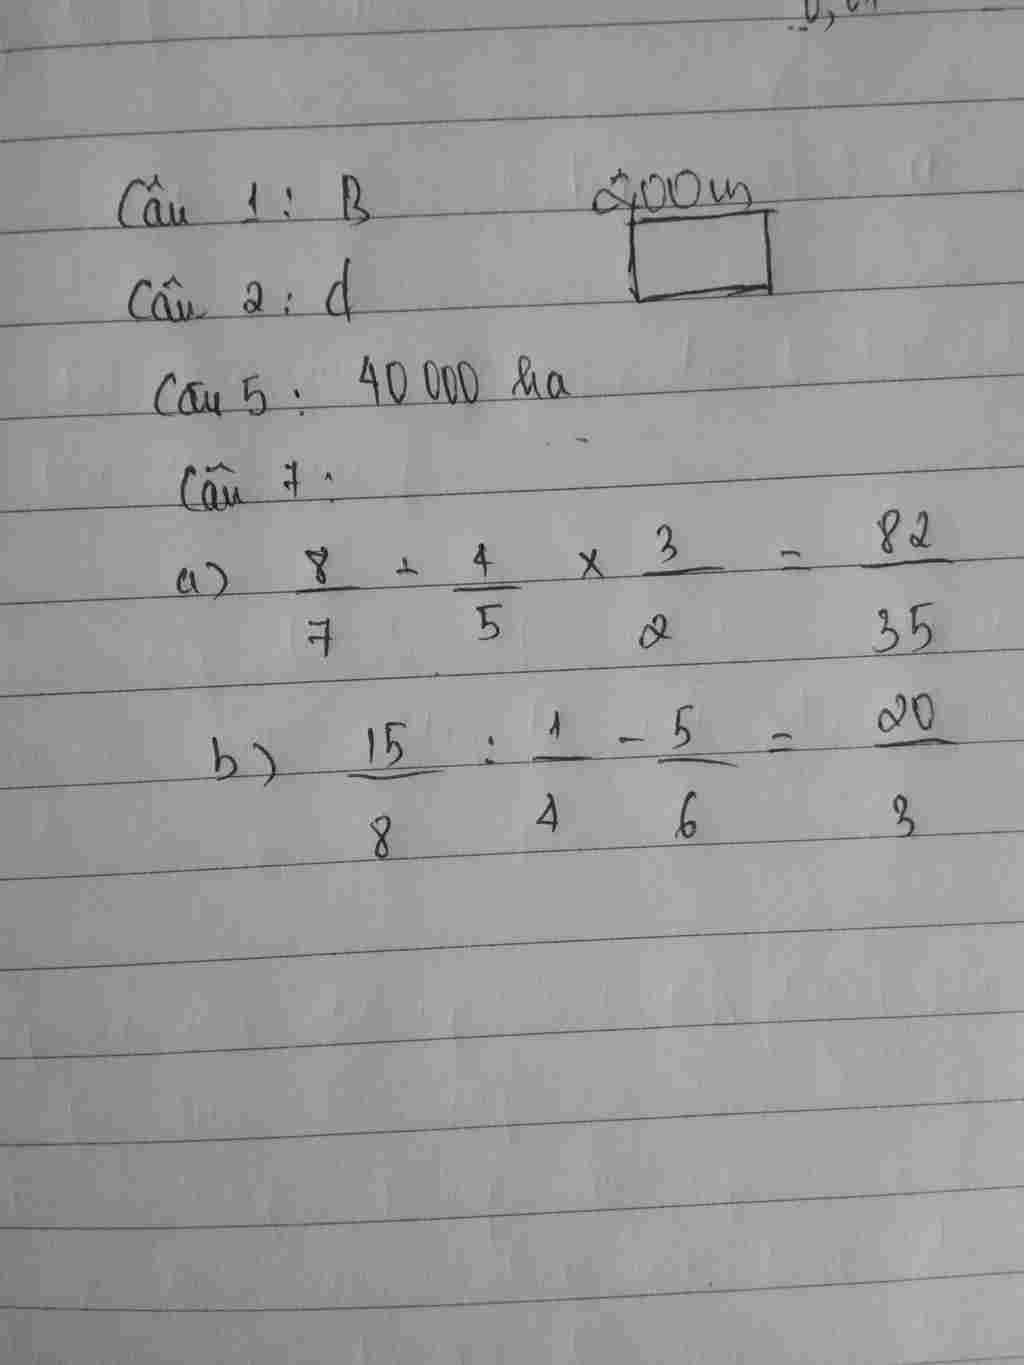 Câu 1: B
200m
Câu 2: d
Câu 5: 40 000 ha
Câu 7:
a) 8/7 + 4/5 × 3/2 = 82/35
b) 15/8 : 1/4 - 5/6 = 20/3